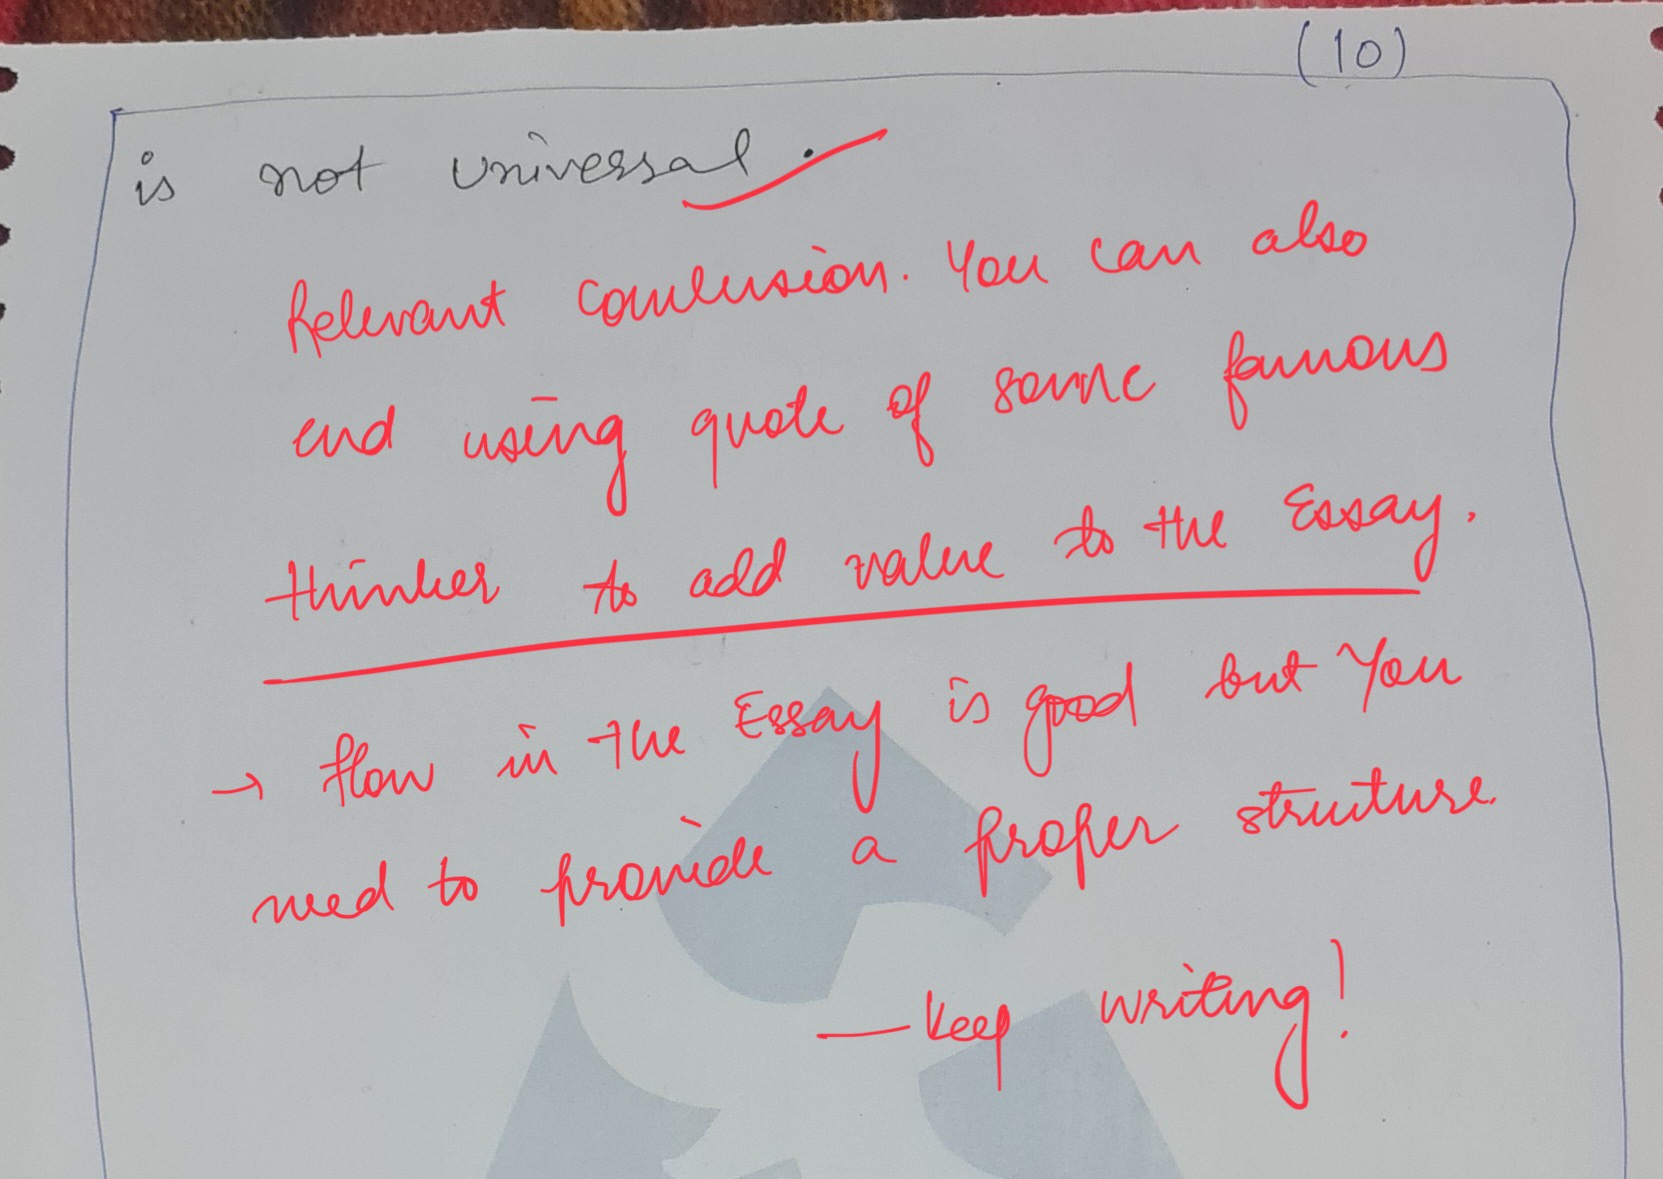 (10)
is not universal.
Relevant conclusion. You can also
end using quote of some famous
thinker to add value to the Essay.
→ flow in the Essay is good but You
need to provide a proper structure.
— keep writing!